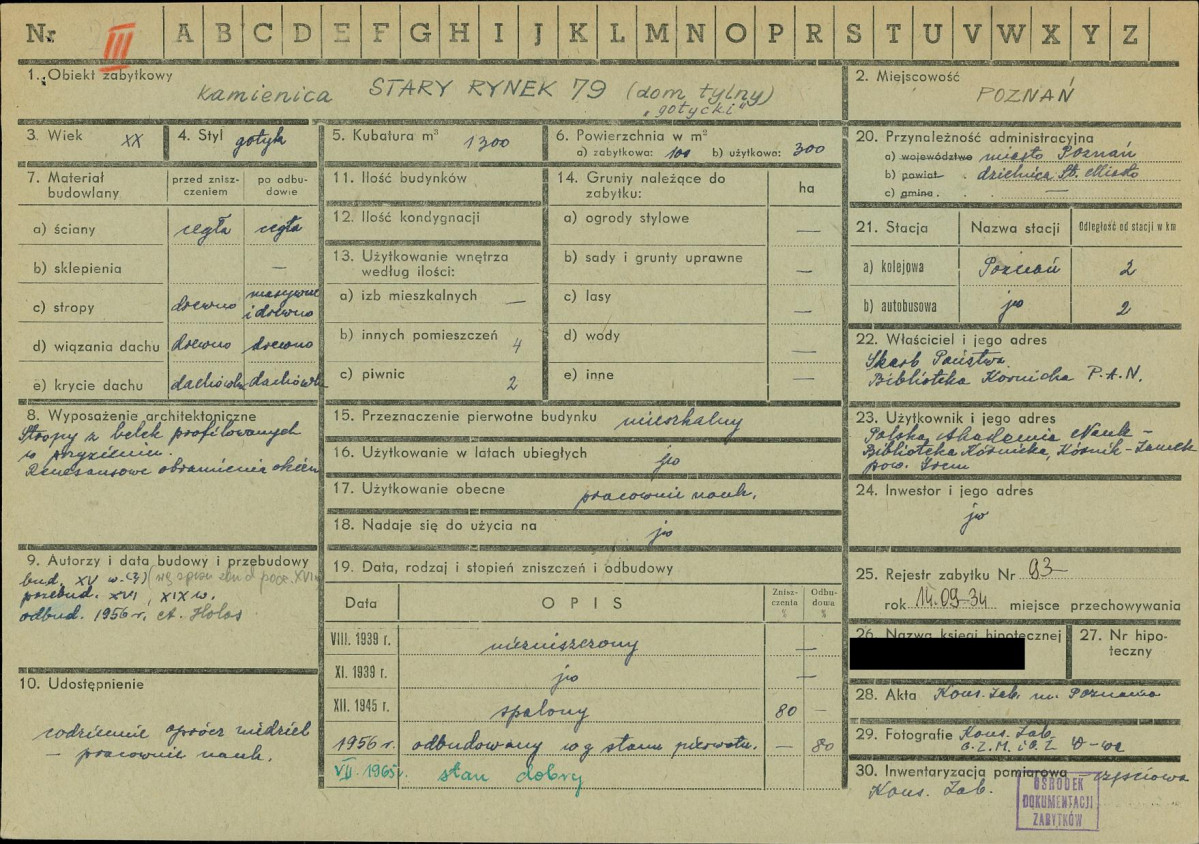 Nr III A B C D E F G H I J K L M N O P R S T U V W X Y Z
1. Obiekt zabytkowy
kamienica STARY RYNEK 79 (dom tylny)
"gotycki"
2. Miejscowość
POZNAŃ
3. Wiek XX
4. Styl gotyk
5. Kubatura m³ 1300
6. Powierzchnia w m²
a) zabytkowa: 100 b) użytkowa: 300
7. Materiał budowlany
przed zniszczeniem
po odbudowie
a) ściany cegła cegła
b) sklepienia —
c) stropy drewno masywne i drewno
d) wiązania dachu drewno drewno
e) krycie dachu dachówka dachówka
8. Wyposażenie architektoniczne
Stropy z belek profilowanych
w przyziemiu.
Renesansowe obramienia okien
9. Autorzy i data budowy i przebudowy
bud. XV w. (?) (wg spisu zbud pocz. XVI w
przebud. XVI, XIX w.
odbud. 1956 r. A. Holas
10. Udostępnienie
codziennie oprócz niedziel
— pracownie nauk.
11. Ilość budynków
12. Ilość kondygnacji
13. Użytkowanie wnętrza
według ilości:
a) izb mieszkalnych —
b) innych pomieszczeń 4
c) piwnic 2
14. Grunty należące do
zabytku:
ha
a) ogrody stylowe —
b) sady i grunty uprawne —
c) lasy —
d) wody —
e) inne —
15. Przeznaczenie pierwotne budynku mieszkalny
16. Użytkowanie w latach ubiegłych jw
17. Użytkowanie obecne pracownie nauk.
18. Nadaje się do użycia na jw
19. Data, rodzaj i stopień zniszczeń i odbudowy
Data OPIS Zniszczenia % Odbudowa %
VIII. 1939 r. niezniszczony —
XI. 1939 r. jw —
XII. 1945 r. spalony 80 —
1956 r. odbudowany wg stanu pierwotn. — 80
VII. 1965 r. stan dobry
20. Przynależność administracyjna
a) województwo miasto Poznań
b) powiat dzielnica St. Miasto
c) gmina —
21. Stacja Nazwa stacji Odległość od stacji w km
a) kolejowa Poznań 2
b) autobusowa jw 2
22. Właściciel i jego adres
Skarb Państwa
Biblioteka Kórnicka P.A.N.
23. Użytkownik i jego adres
Polska Akademia Nauk -
Biblioteka Kórnicka, Kórnik-Zamek
pow. Śrem
24. Inwestor i jego adres
jw
25. Rejestr zabytku Nr 93
rok 14.09.34 miejsce przechowywania
26. Nazwa księgi hipotecznej
27. Nr hipoteczny
28. Akta Kons. Zab. m. Poznania
29. Fotografie Kons. Zab.
O.Z.M. i O.Z. W-wa
30. Inwentaryzacja pomiarowa - częściowa
Kons. Zab.
OŚRODEK
DOKUMENTACJI
ZABYTKÓW